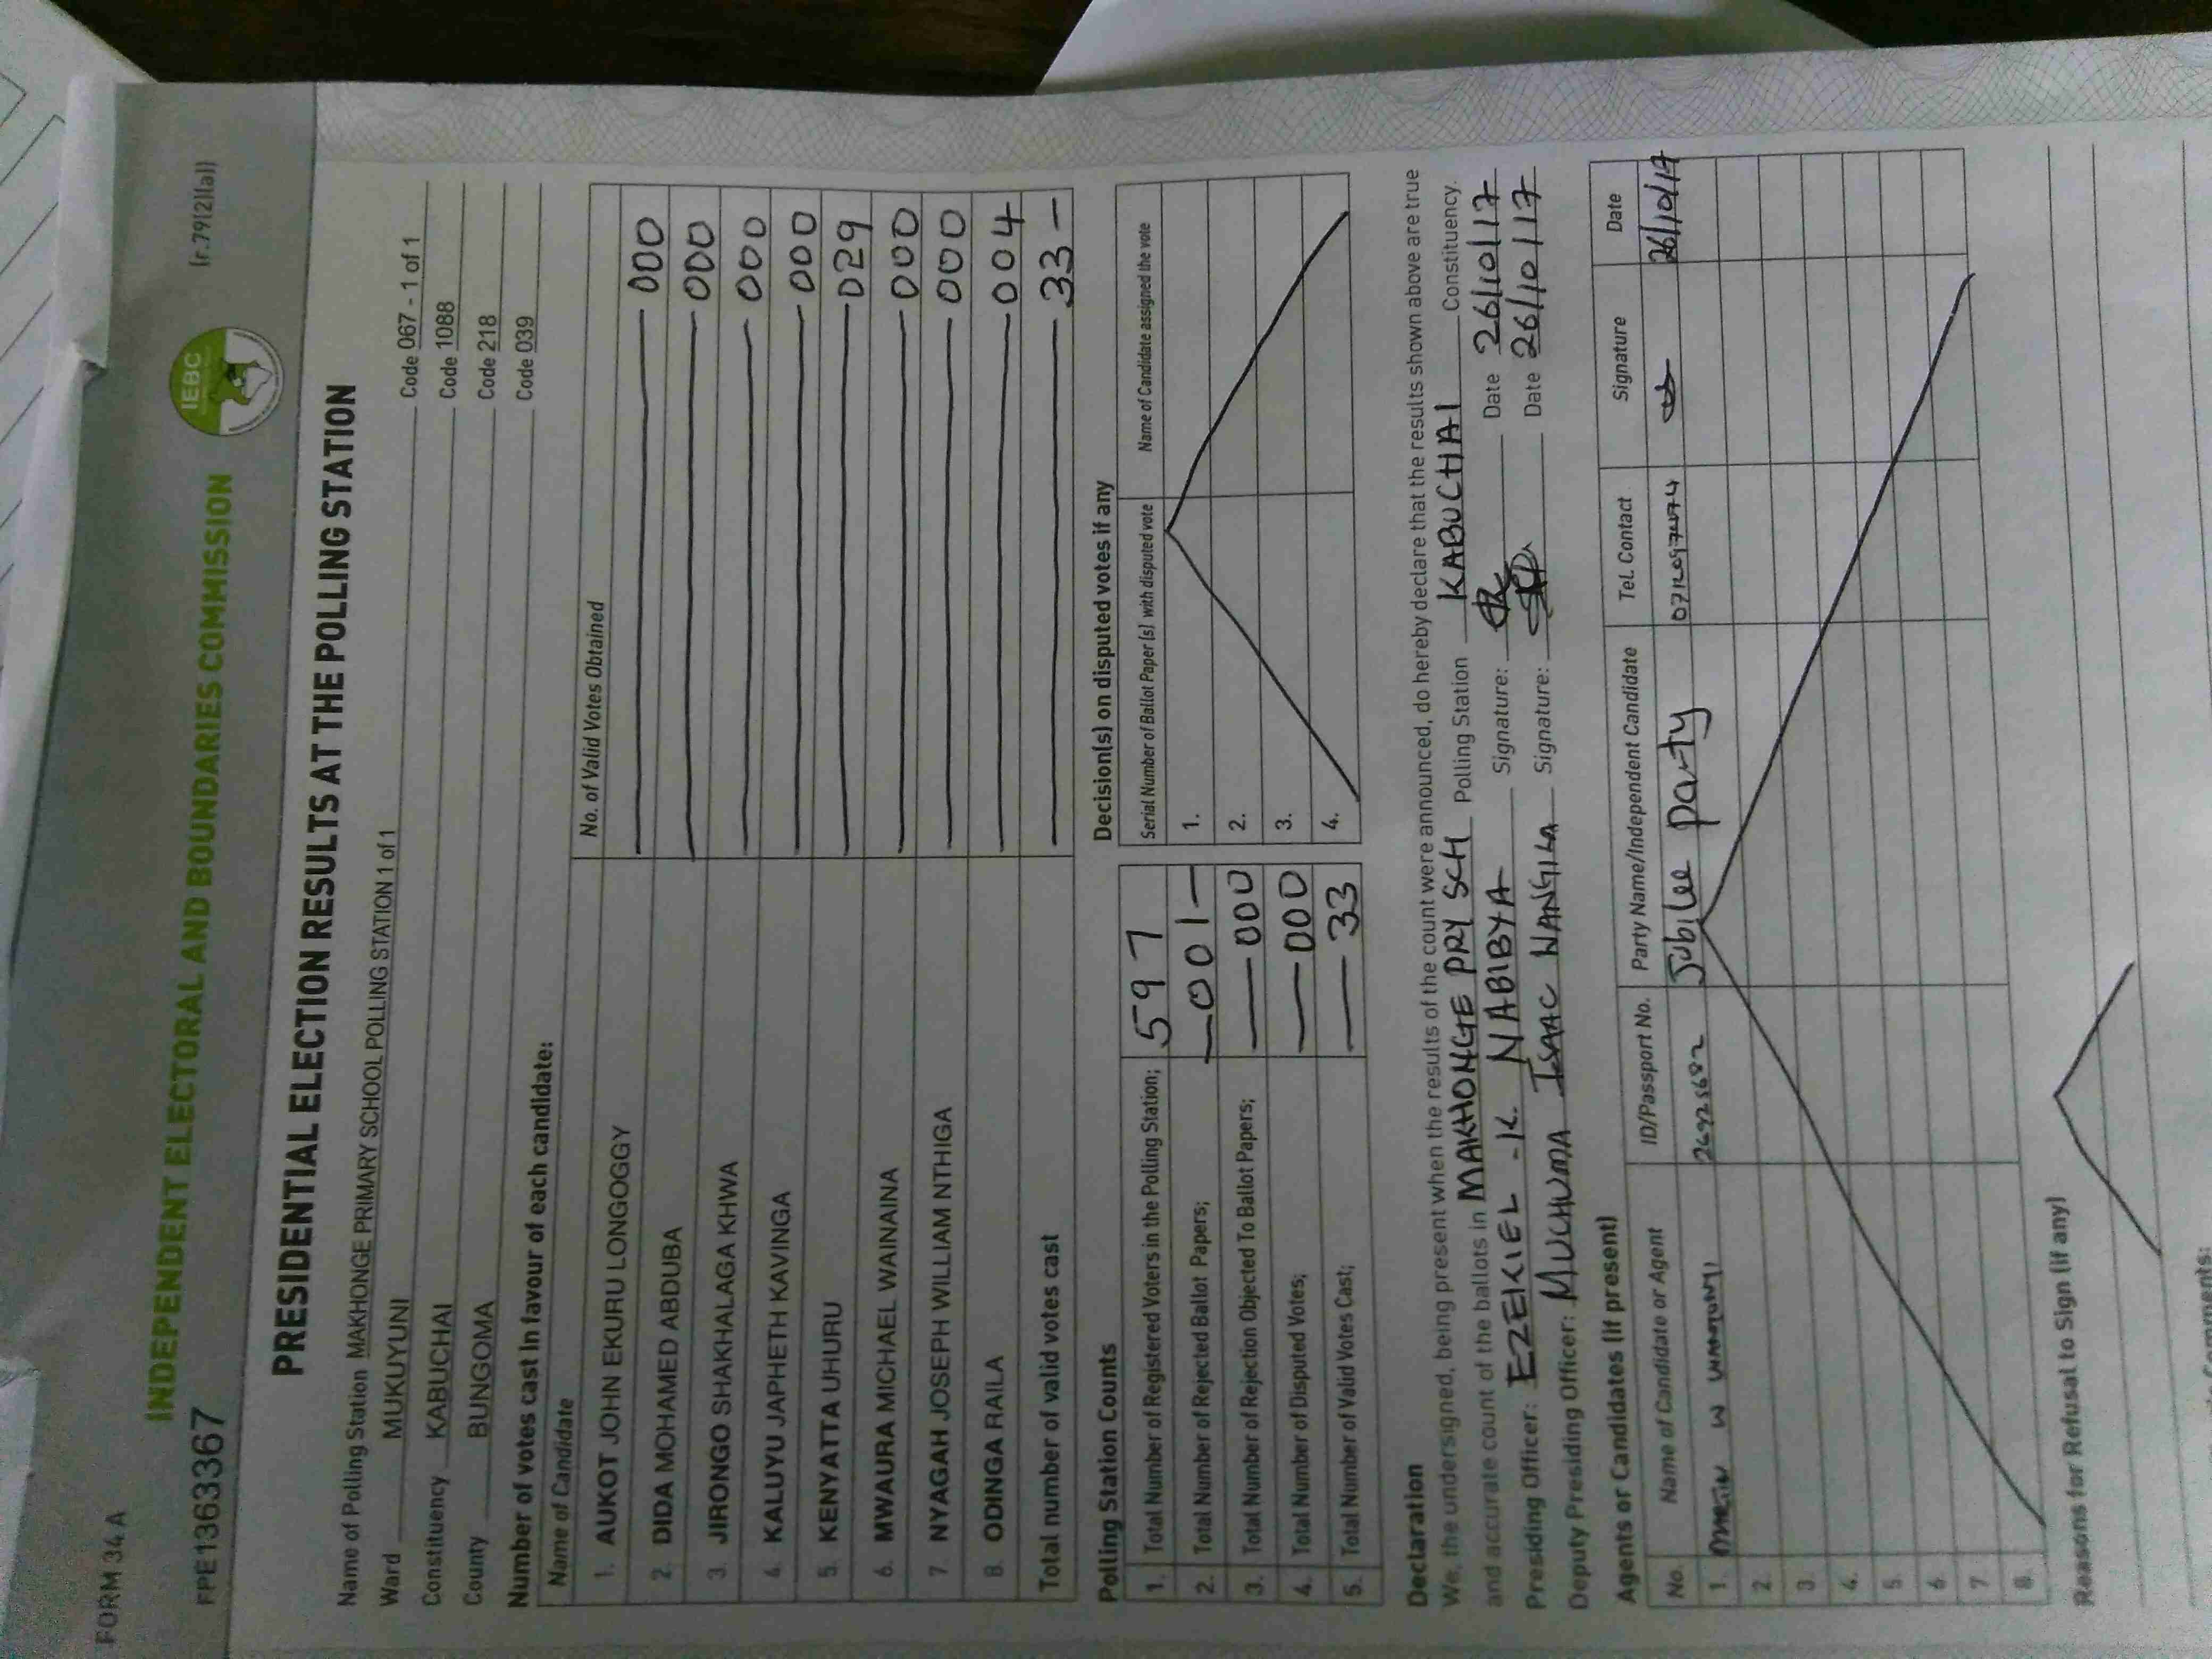 FORM 34A
INDEPENDENT ELECTORAL AND BOUNDARIES COMMISSION
IEBC
(r.79(2)(a))
FPE1363367
PRESIDENTIAL ELECTION RESULTS AT THE POLLING STATION
Name of Polling Station MAKHONGE PRIMARY SCHOOL POLLING STATION 1 of 1 Code 067 - 1 of 1
Ward MUKUYUNI Code 1088
Constituency KABUCHAI Code 218
County BUNGOMA Code 039
Number of votes cast in favour of each candidate:
Name of Candidate No. of Valid Votes Obtained
1. AUKOT JOHN EKURU LONGOGGY 000
2. DIDA MOHAMED ABDUBA 000
3. JIRONGO SHAKHALAGA KHWA 000
4. KALUYU JAPHETH KAVINGA 000
5. KENYATTA UHURU 029
6. MWAURA MICHAEL WAINAINA 000
7. NYAGAH JOSEPH WILLIAM NTHIGA 000
8. ODINGA RAILA 004
Total number of valid votes cast 33 -
Polling Station Counts
1. Total Number of Registered Voters in the Polling Station; 597
2. Total Number of Rejected Ballot Papers; 001 -
3. Total Number of Rejection Objected To Ballot Papers; 000
4. Total Number of Disputed Votes; 000
5. Total Number of Valid Votes Cast; 33
Decision(s) on disputed votes if any
Serial Number of Ballot Paper (s) with disputed vote Name of Candidate assigned the vote
1.
2.
3.
4.
Declaration
We, the undersigned, being present when the results of the count were announced, do hereby declare that the results shown above are true
and accurate count of the ballots in MAKHONGE PRY SCH Polling Station KABUCHAI Constituency.
Presiding Officer: EZEKIEL -K. NABIBYA Signature: Date 26/10/17
Deputy Presiding Officer: MUCHUMA ISAAC WANGILA Signature: Date 26/10/17
Agents or Candidates (if present)
No. Name of Candidate or Agent ID/Passport No. Party Name/Independent Candidate Tel. Contact Signature Date
1. W 26925682 Jubilee party 26/10/17
2.
3.
4.
5.
6.
7.
8.
Reasons for Refusal to Sign (if any)